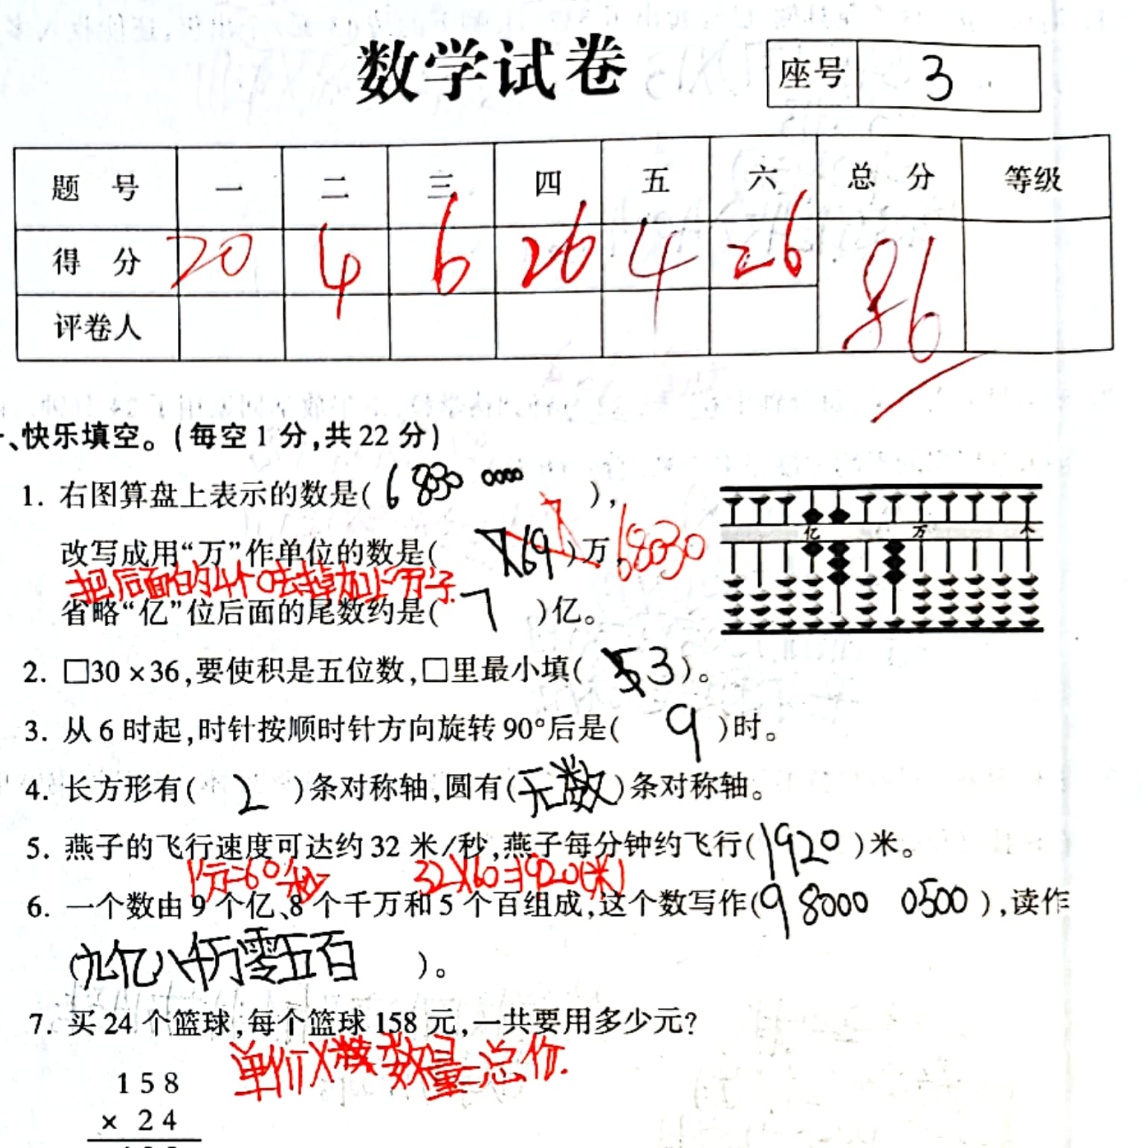 数学试卷
座号 3
题 号 一 二 三 四 五 六 总 分 等级
得 分 20 4 6 26 4 26 86
评卷人
、快乐填空。(每空1分,共22分)
1. 右图算盘上表示的数是( 6 8030 0000 ),
亿 万 个
改写成用“万”作单位的数是( 769 )万, 68030
把后面的4个0去掉加上万字
省略“亿”位后面的尾数约是( 7 )亿。
2. □30×36,要使积是五位数,□里最小填( 3 )。
3. 从6时起,时针按顺时针方向旋转90°后是( 9 )时。
4. 长方形有( 2 )条对称轴,圆有( 无数 )条对称轴。
5. 燕子的飞行速度可达约32米/秒,燕子每分钟约飞行( 1920 )米。
1分=60秒 32×60=1920(米)
6. 一个数由9个亿、8个千万和5个百组成,这个数写作( 9 8000 0500 ),读作
( 九亿八千万零五百 )。
7. 买24个篮球,每个篮球158元,一共要用多少元?
单价×数量=总价.
158
× 24